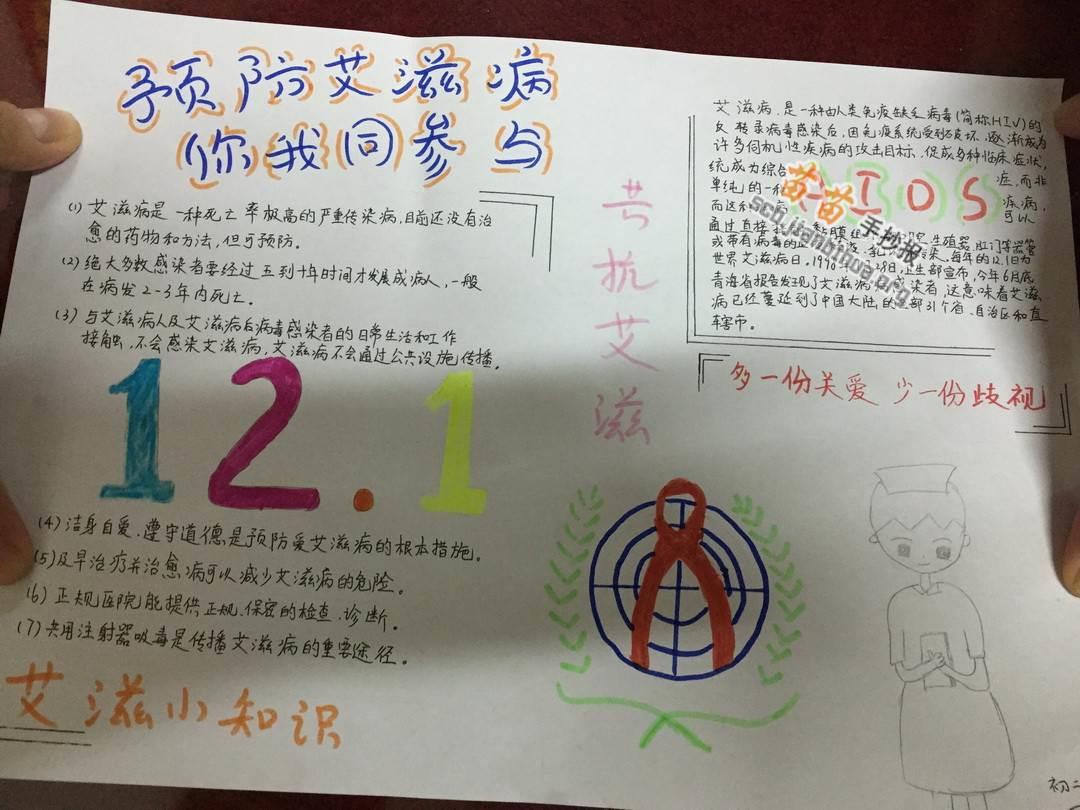 预防艾滋病
你我同参与
(1) 艾滋病是一种死亡率极高的严重传染病,目前还没有治
愈的药物和方法,但可预防。
(2) 绝大多数感染者要经过五到十年时间才发展成病人,一般
在病发2-3年内死亡。
(3) 与艾滋病人及艾滋病后病毒感染者的日常生活和工作
接触,不会感染艾滋病,艾滋病不会通过公共设施传播。
12.1
(4) 洁身自爱、遵守道德是预防爱艾滋病的根本措施。
(5) 及早治疗并治愈病可以减少艾滋病的危险。
(6) 正规医院能提供正规、保密的检查、诊断。
(7) 共用注射器吸毒是传播艾滋病的重要途径。
艾滋小知识
抗艾滋
艾滋病,是一种由人类免疫缺乏病毒(简称HIV)的
反转录病毒感染后,因免疫系统受到破坏,逐渐成为
许多伺机性疾病的攻击目标,促成多种临床症状,
统成为综合 症,而非
单纯的一种 疾病,
而这种 可以
通过直接 黏膜组 生殖器、肛门等器官
或带有病毒的 每年的12.1日为
世界艾滋病日。1998 28日,卫生部宣布,今年6月底
青海省报告发现了艾滋病 感染者,这意味着艾滋
病已经蔓延到了中国大陆的全部31个省、自治区和直
辖市。
IOS
苗苗手抄报
shouchaobao.org
多一份关爱 少一份歧视
初二